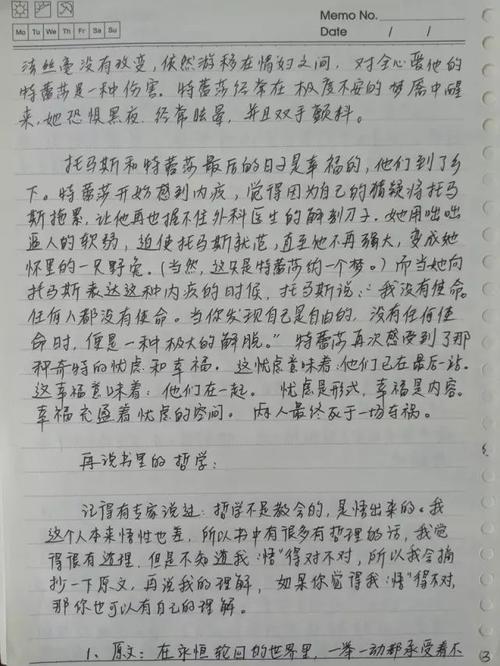 Memo No.
Mo Tu We Th Fr Sa Su
Date / /
法丝毫没有改变，依然游移在情妇之间，对全心爱他的
特蕾莎是一种伤害。特蕾莎经常在极度不安的梦魇中醒
来，她恐惧黑夜，经常眩晕，并且双手颤抖。
托马斯和特蕾莎最后的日子是幸福的，他们到了乡
下。特蕾莎开始感到内疚，觉得因为自己的猜疑将托马
斯拖累，让他再也握不住外科医生的解剖刀子。她用咄咄
逼人的软弱，迫使托马斯就范，直至他不再强大，变成她
怀里的一只野兔。（当然，这只是特蕾莎的一个梦。）而当她向
托马斯表达这种内疚的时候，托马斯说：“我没有使命。
任何人都没有使命。当你发现自己是自由的，没有任何使
命时，便是一种极大的解脱。”特蕾莎再次感受到了那
种奇特的忧虑和幸福。这忧虑意味着：他们已在最后一站。
这幸福意味着：他们在一起。忧虑是形式，幸福是内容。
幸福充盈着忧虑的空间。两人最终死于一场车祸。
再说书里的哲学：
记得有专家说过：哲学不是教会的，是悟出来的。我
这个人本来悟性也差，所以书中有很多有哲理的话，我觉
得很有道理，但是不知道我“悟”得对不对，所以我会摘
抄一下原文，再说我的理解，如果你觉得我“悟”得不对，
那你也可以有自己的理解。
1、原文：在永恒轮回的世界里，一举一动都承受着不
③